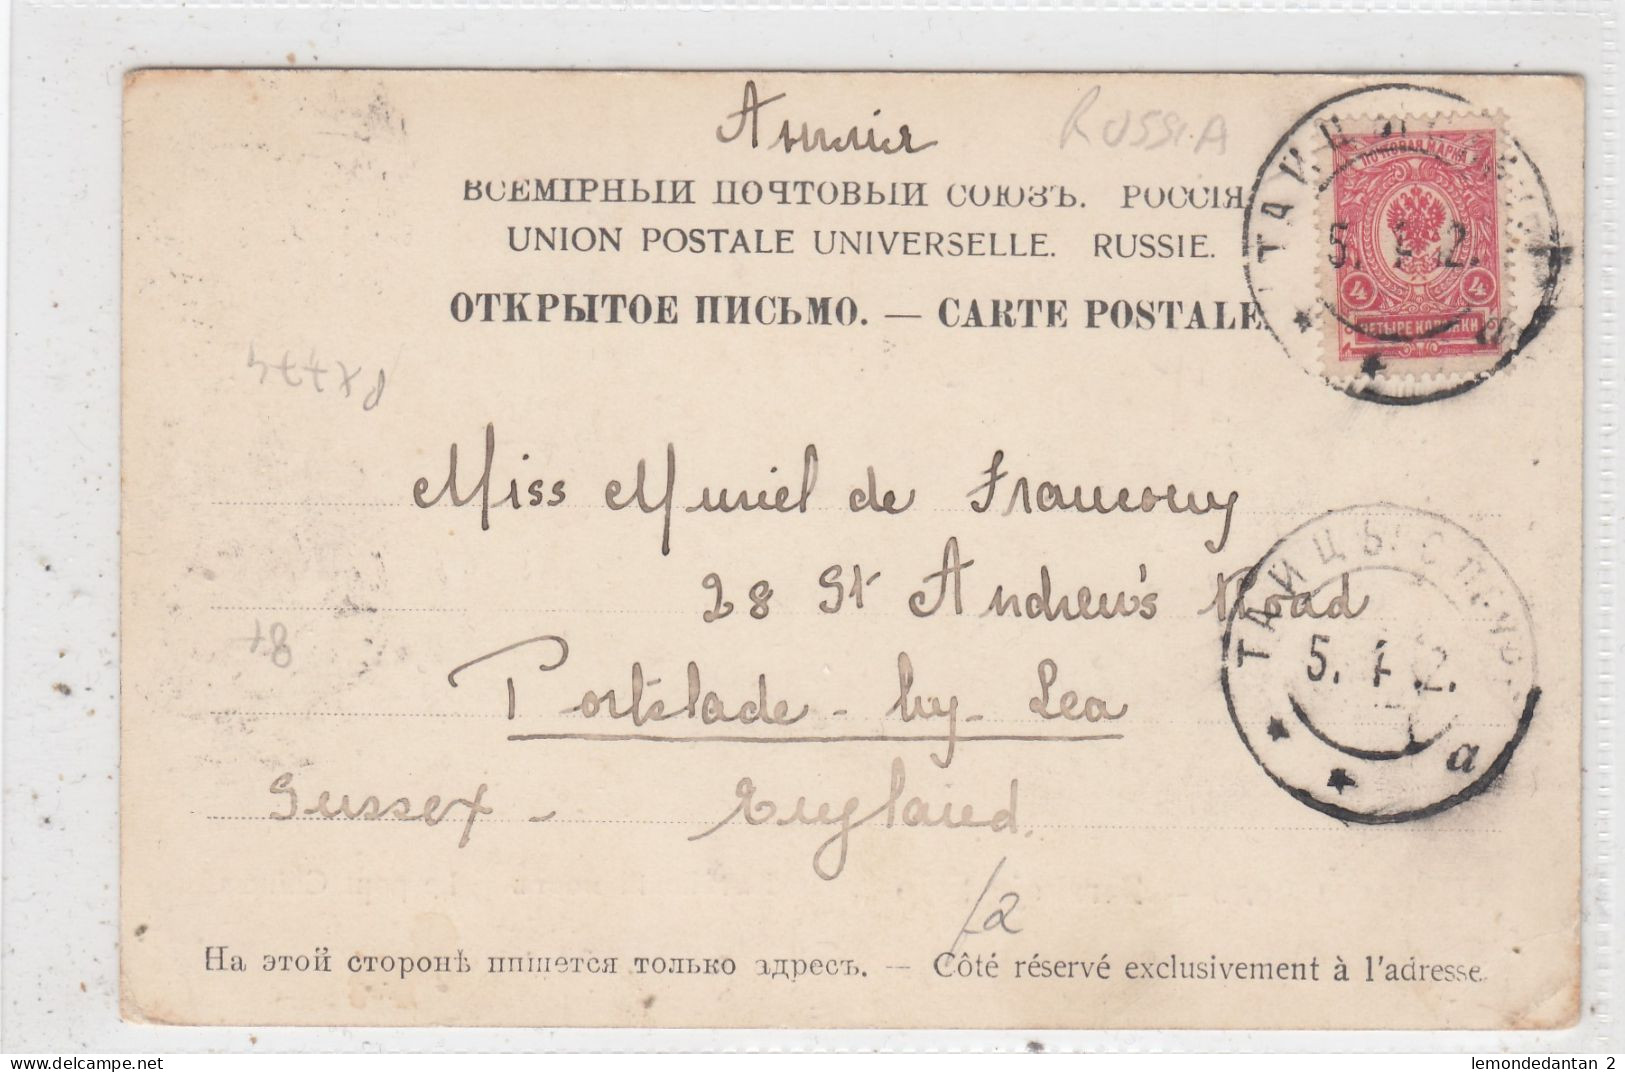 Англія
RUSSIA
ВСЕМІРНЫЙ ПОЧТОВЫЙ СОЮЗЪ. РОССІЯ
UNION POSTALE UNIVERSELLE. RUSSIE.
ОТКРЫТОЕ ПИСЬМО. — CARTE POSTALE
ПОЧТОВАЯ МАРКА
4 4
ЧЕТЫРЕ КОПѢЙКИ
ТАИЦЫ
5. 2.
а
Miss Muriel de Francony
28 St Andrew's Road
Portslade - by - Sea
Sussex - England.
ТАИЦЫ С П
5. 2.
а
/2
На этой сторонѣ пишется только адресъ. — Côté réservé exclusivement à l'adresse.
lemondedantan 2